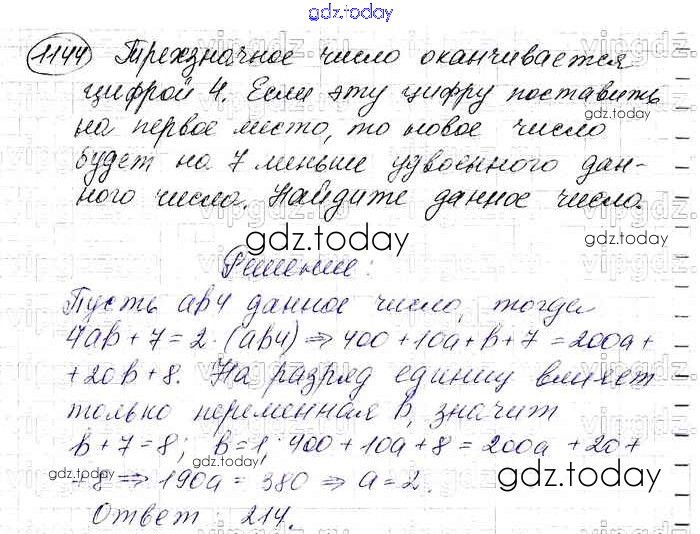 gdz.today
1144 Трехзначное число оканчивается
цифрой 4. Если эту цифру поставить
на первое место, то новое число
будет на 7 меньше удвоенного дан-
ного числа. Найдите данное число.
gdz.today
Решение:
Пусть ab4 данное число, тогда
4ab + 7 = 2 · (ab4) ⇒ 400 + 10a + b + 7 = 200a +
+ 20b + 8. На разряд единиц влияет
только переменная b, значит
b + 7 = 8; b = 1; 400 + 10a + 8 = 200a + 20 +
+ 8 ⇒ 190a = 380 ⇒ a = 2.
Ответ: 214.